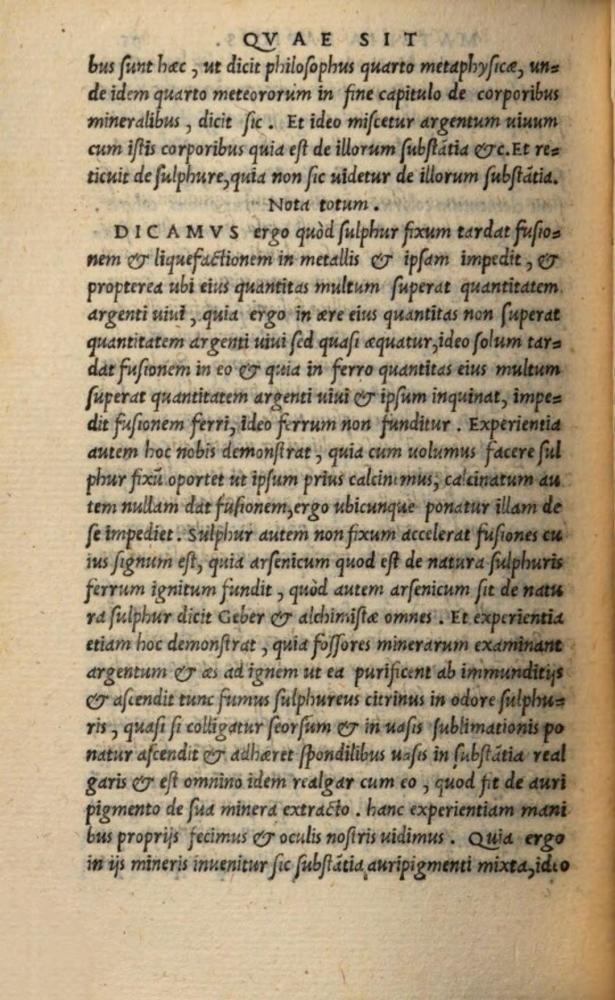 QVAE SIT
bus sunt hæc, ut dicit philosophus quarto metaphysicæ, un=
de idem quarto meteororum in fine capitulo de corporibus
mineralibus, dicit sic. Et ideo miscetur argentum uiuum
cum istis corporibus quia est de illorum substãtia &c. Et re=
ticuit de sulphure, quia non sic uidetur de illorum substãtia.
Nota totum.
DICAMVS ergo quòd sulphur fixum tardat fusio=
nem & liquefactionem in metallis & ipsam impedit, &
propterea ubi eius quantitas multum superat quantitatem
argenti uiui, quia ergo in ære eius quantitas non superat
quantitatem argenti uiui sed quasi æquatur, ideo solum tar=
dat fusionem in eo & quia in ferro quantitas eius multum
superat quantitatem argenti uiui & ipsum inquinat, impe=
dit fusionem ferri, ideo ferrum non funditur. Experientia
autem hoc nobis demonstrat, quia cum uolumus facere sul
phur fixũ oportet ut ipsum prius calcinemus, calcinatum au
tem nullam dat fusionem, ergo ubicunque ponatur illam de
se impediet. Sulphur autem non fixum accelerat fusiones cu
ius signum est, quia arsenicum quod est de natura sulphuris
ferrum ignitum fundit, quòd autem arsenicum sit de natu
ra sulphur dicit Geber & alchimistæ omnes. Et experientia
etiam hoc demonstrat, quia fossores minerarum examinant
argentum & æs ad ignem ut ea purificent ab immunditijs
& ascendit tunc fumus sulphureus citrinus in odore sulphu=
ris, quasi si colligatur seorsum & in uasis sublimationis po
natur ascendit & adhæret spondilibus uasis in substãtia real
garis & est omnino idem realgar cum eo, quod fit de auri
pigmento de sua minera extracto. hanc experientiam mani
bus proprijs fecimus & oculis nostris uidimus. Quia ergo
in ijs mineris inuenitur sic substãtia auripigmenti mixta, ideo